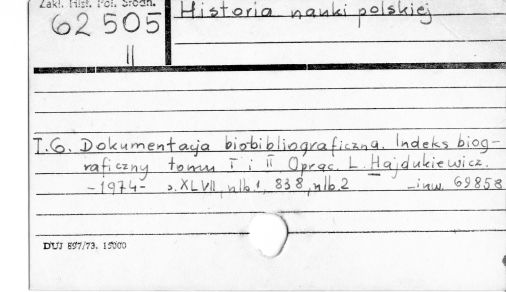 Zakł. Hist. Pol. Średn.
62 505
II
Historia nauki polskiej
T.6. Dokumentacja biobibliograficzna. Indeks biog-
raficzny tomu I i II Oprac. L. Hajdukiewicz.
-1974- s. XLVII, nlb. 1, 838, nlb. 2 -inw. 69858
DUJ 897/73. 15000